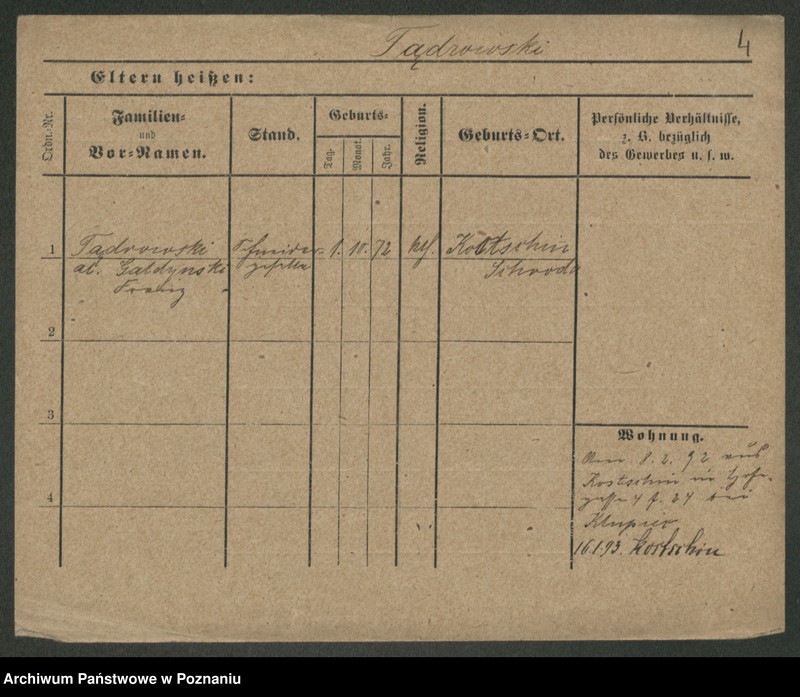 Tądrowski
4
Eltern heißen:
Ordn.-Nr.
Familien-
und
Vor-Namen.
Stand.
Geburts-
Tag.
Monat.
Jahr.
Religion.
Geburts-Ort.
Persönliche Verhältnisse,
z. B. bezüglich
des Gewerbes u. s. w.
1
Tądrowski
al. Galdynski
Franz
Schneider-
geselle
1.
10.
72
kth.
Kostschin
Schroda
2
3
4
Wohnung.
8. 2. 92 aus
Kostschin in
24 bei
16.1.93. Kostschin
Archiwum Państwowe w Poznaniu